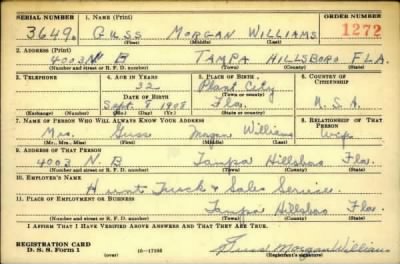 SERIAL NUMBER 1. NAME (Print) ORDER NUMBER
3649. GUSS MORGAN WILLIAMS 1272
(First) (Middle) (Last)
2. ADDRESS (Print)
4003 N. B TAMPA HILLSBORO FLA.
(Number and street or R. F. D. number) (Town) (County) (State)
3. TELEPHONE 4. AGE IN YEARS 5. PLACE OF BIRTH 6. COUNTRY OF CITIZENSHIP
32 Plant City
DATE OF BIRTH (Town or county)
Sept. 8 1908 Fla. U.S.A.
(Exchange) (Number) (Mo.) (Day) (Yr.) (State or country)
7. NAME OF PERSON WHO WILL ALWAYS KNOW YOUR ADDRESS 8. RELATIONSHIP OF THAT PERSON
Mrs. Guss Morgan Williams Wife
(Mr., Mrs., Miss) (First) (Middle) (Last)
9. ADDRESS OF THAT PERSON
4003 N. B Tampa Hillsboro Fla.
(Number and street or R. F. D. number) (Town) (County) (State)
10. EMPLOYER'S NAME
Truck & Sales Service.
11. PLACE OF EMPLOYMENT OR BUSINESS
Tampa Hillsboro Fla.
(Number and street or R. F. D. number) (Town) (County) (State)
I AFFIRM THAT I HAVE VERIFIED ABOVE ANSWERS AND THAT THEY ARE TRUE.
REGISTRATION CARD
D. S. S. Form 1 (over) 16—17105 Guss Morgan Williams
(Registrant's signature)